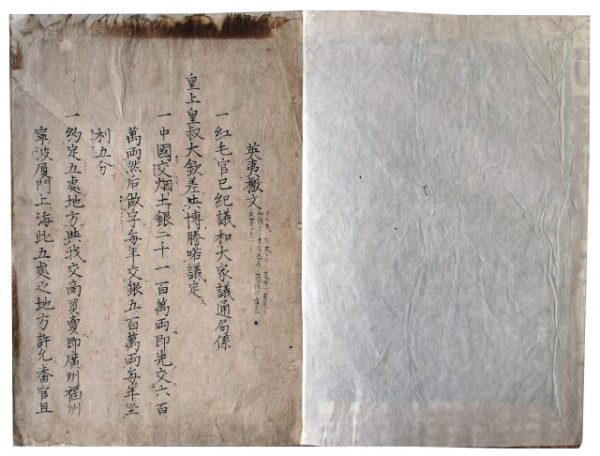 英夷檄文
一紅毛官已紀議和大家議通局係
皇上皇叔大欽差與博謄喏議定
一中國交烟土銀二千一百萬兩即先交六百
萬兩然后做字每年交銀五百萬兩每年坐
利五分
一約定五處地方與我交商買賣即廣州福州
寧波厦門上海此五處之地方許允番官且